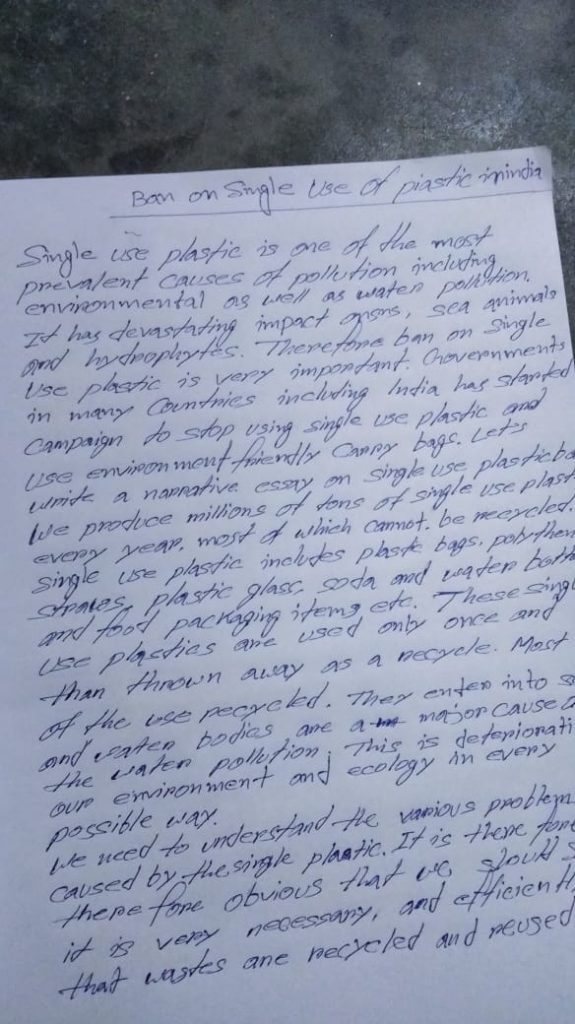 Ban on Single Use of piastic inindia
Single use plastic is one of the most
prevalent causes of pollution including
environmental as well as water pollution.
It has devastating impact, sea animals
and hydrophytes. Therefore ban on Single
Use plastic is very important. Governments
in many Countries including India has started
campaign to stop using single use plastic and
use environment friendly carry bags. Let's
write a narrative essay on single use plastic ba
We produce millions of tons of single use plast
every year, most of which cannot. be recycled.
single use plastic includes plastic bags, polythen
plastic glass, soda and water bottl
and food packaging items etc. These singl
use plastics are used only once and
than thrown away as a recycle. Most
of the use recycled. They enter into s
and water bodies are a major cause o
the water pollution. This is deteriorati
our environment and ecology in every
possible way.
we need to understand the various problem
caused by the single plastic. It is there fore
there fore obvious that we s
it is very necessary, and efficientl
that wastes are recycled and reused